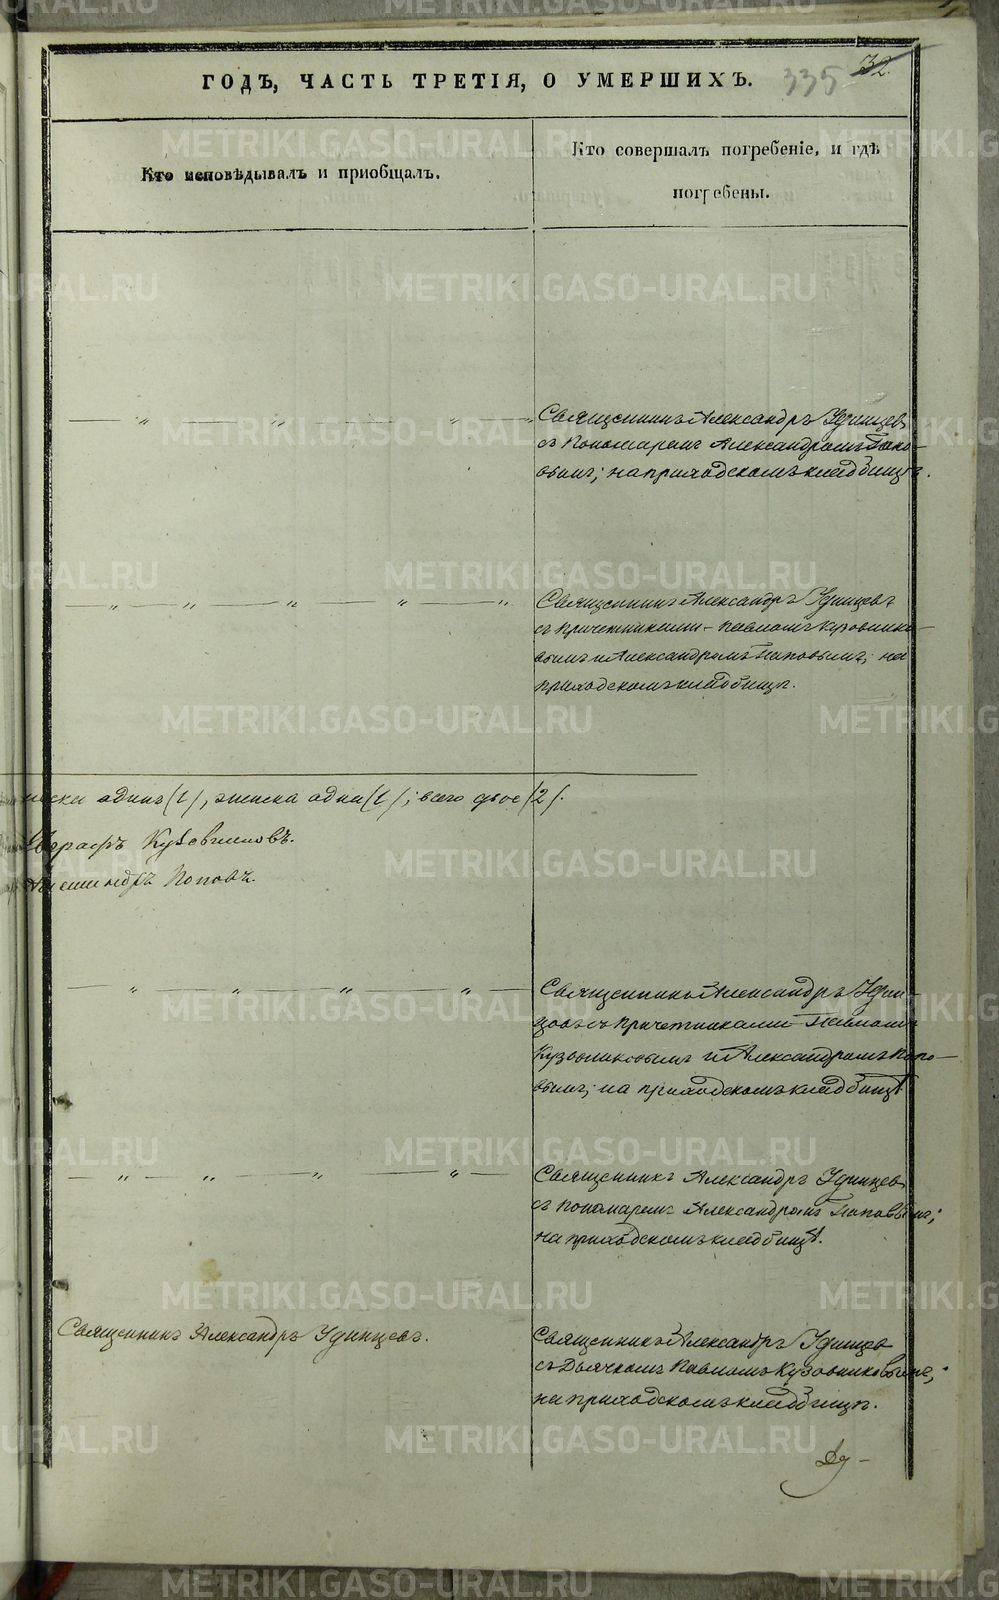 ГОДЪ, ЧАСТЬ ТРЕТІЯ, О УМЕРШИХЪ.
335
32.
Кто исповѣдывалъ и пріобщалъ.
Кто совершалъ погребеніе, и гдѣ
погребены.
Священникъ Александръ Удинцевъ
съ Пономаремъ Александромъ Попо-
вымъ; на приходскомъ кладбищѣ.
Священникъ Александръ Удинцевъ
съ причетниками – Павломъ Кузовнико-
вымъ и Александромъ Поповымъ; на
приходскомъ кладбищѣ.
одинъ (1), женска одна (1); всего двое (2).
Кузовниковъ.
Поповъ.
Священникъ Александръ Удин-
цевъ съ причетниками Павломъ
Кузовниковымъ и Александромъ Попо-
вымъ; на приходскомъ кладбищѣ
Священникъ Александръ Удинцевъ
съ пономаремъ Александромъ Поповымъ;
на приходскомъ кладбищѣ.
Священникъ Александръ Удинцевъ.
Священникъ Александръ Удинцевъ
съ Дьячкомъ Павломъ Кузовниковымъ;
на приходскомъ кладбищѣ.
METRIKI.GASO-URAL.RU